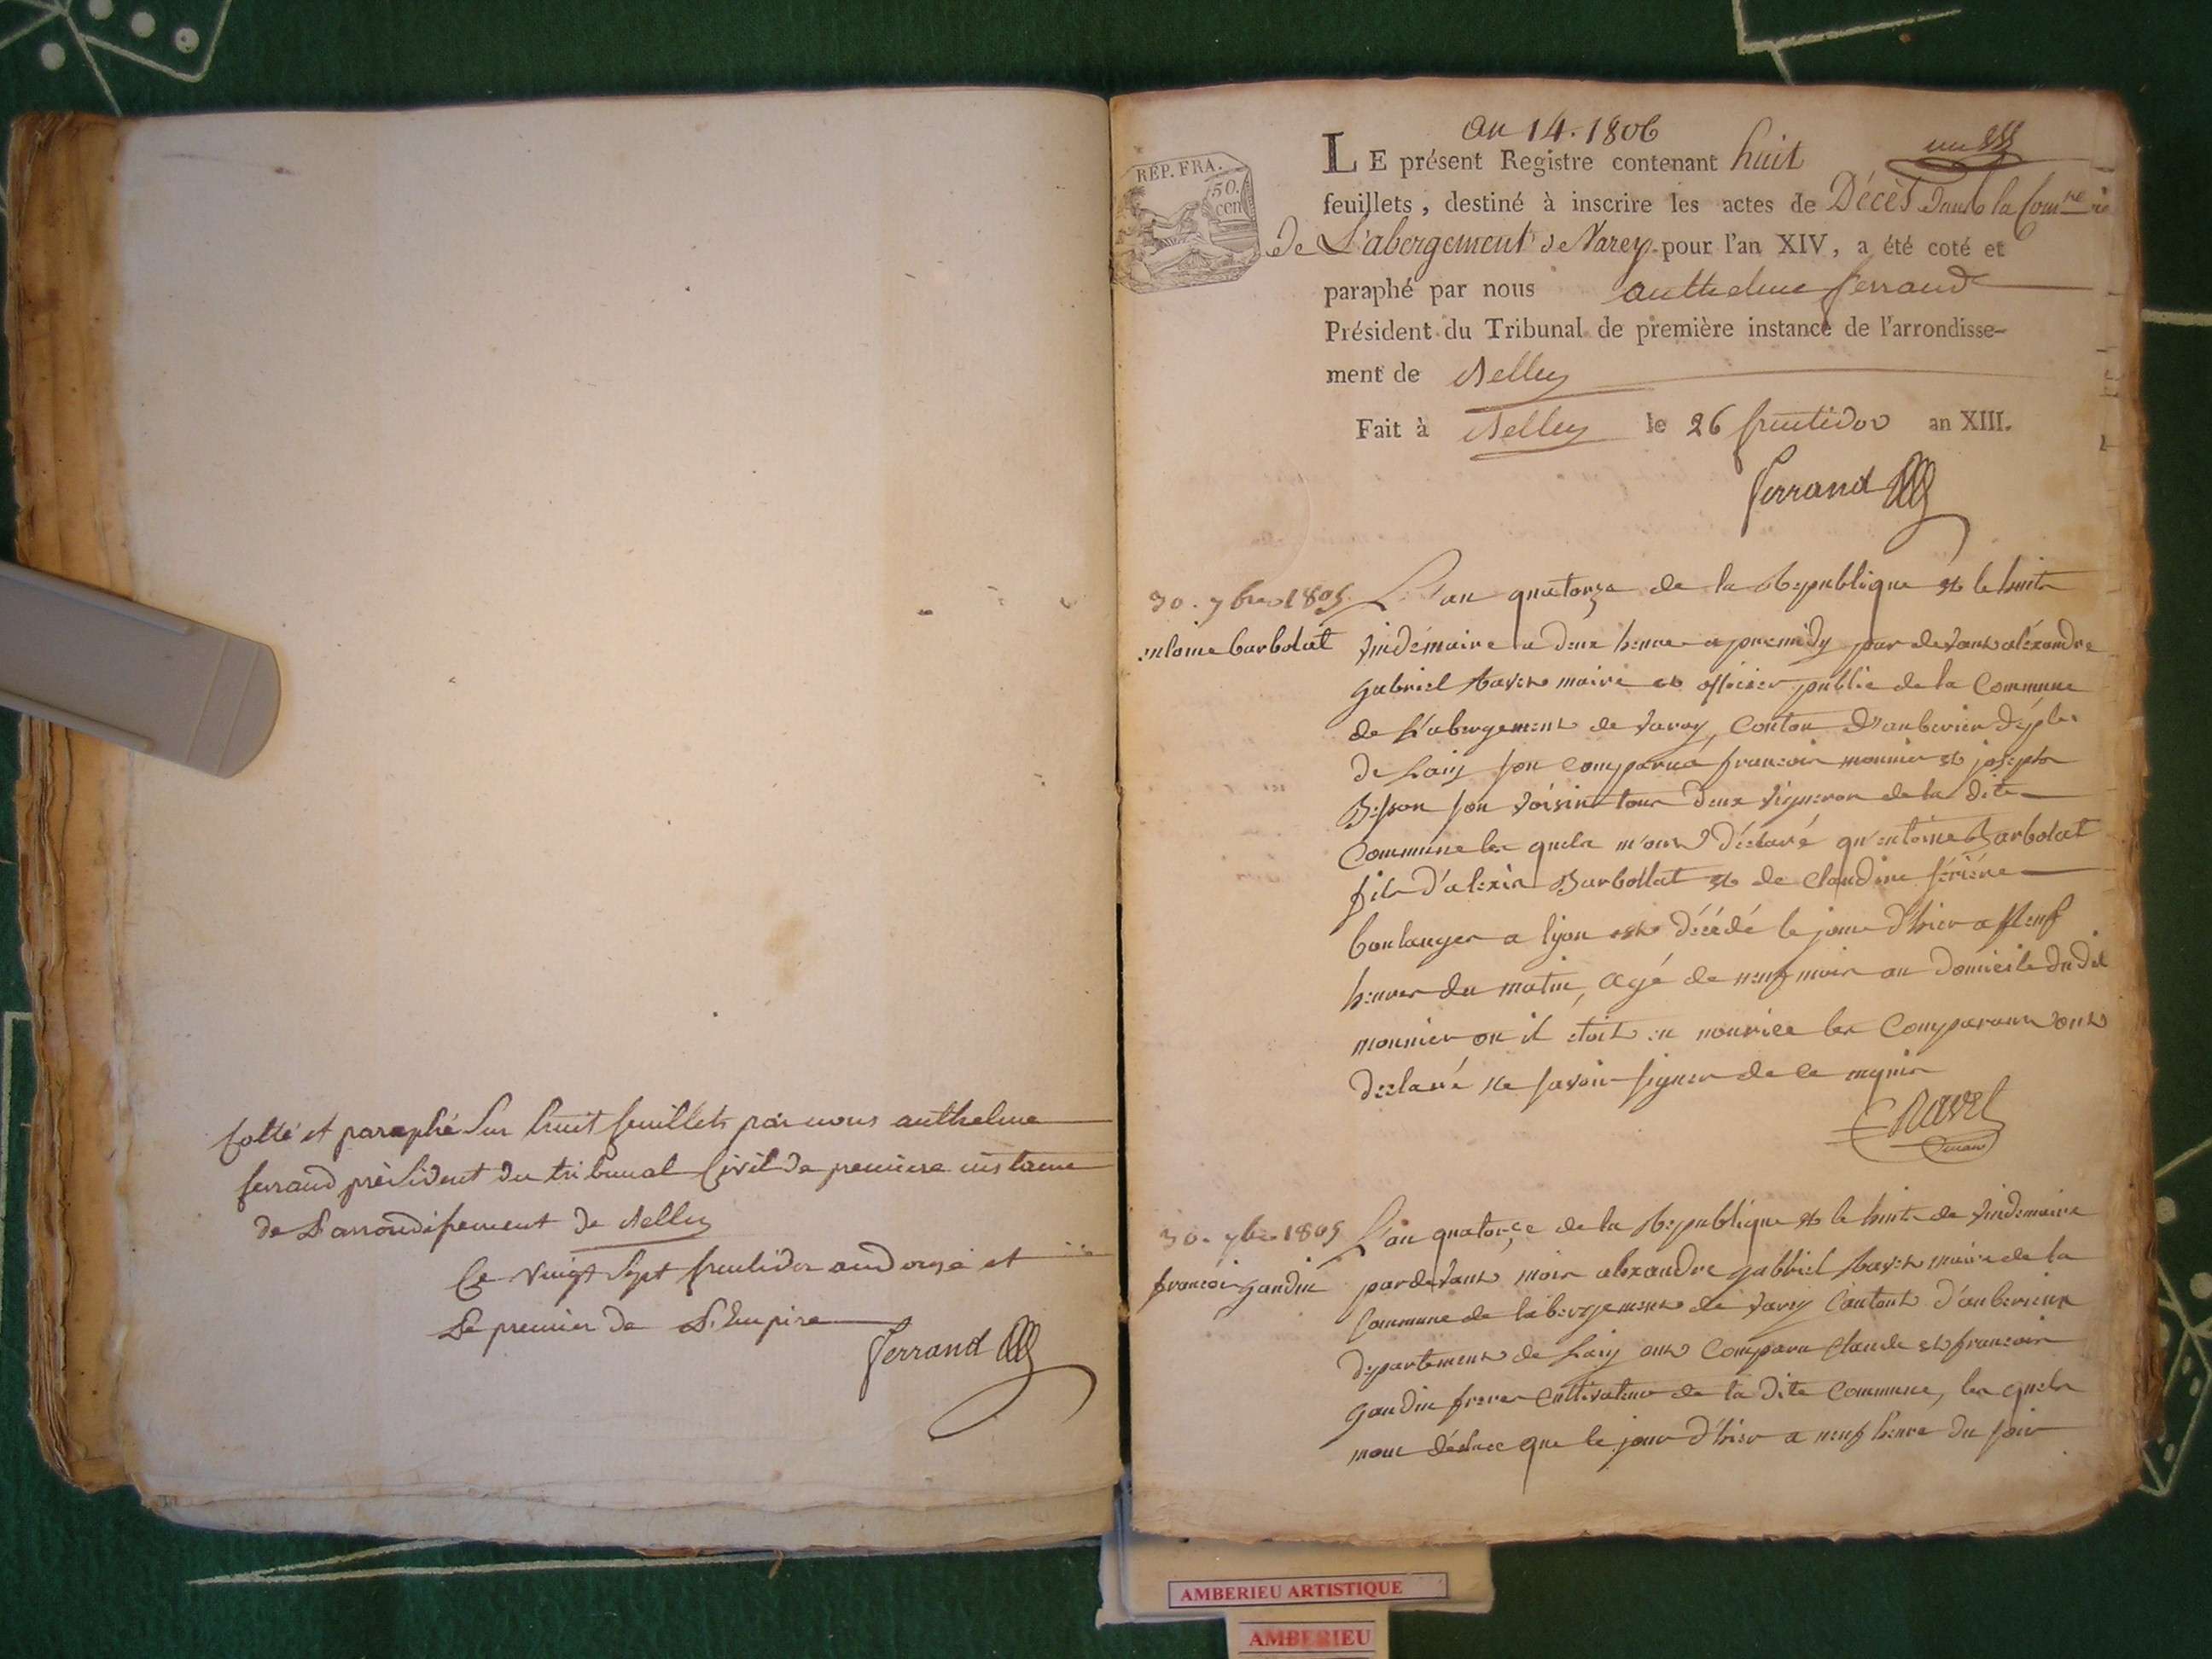 Cotté et paraphé Sur huit feuillets par nous anthelme
ferrand président du tribunal Civil de premiere instance
de L'arrondissement de Belley
Ce vingt Sept fructidor an douze et
Le premier de L'Empire
Ferrand
an 14. 1806
un
RÉP. FRA.
50.
cen
LE présent Registre contenant huit
feuillets, destiné à inscrire les actes de Décès dans la Comne
de L'abergement de Varey pour l'an XIV, a été coté et
paraphé par nous anthelme ferrand
Président du Tribunal de première instance de l'arrondisse-
ment de Belley
Fait à Belley le 26 fructidor an XIII.
Ferrand
30. 7bre 1805 L'an quatorze de la Republique et le huit
entoine barbolat vindémaire a deux heure apremidy par devant aléxandre
gabriel Ravet maire et officier public de la Commune
de L'abergement de varey, Conton d'anberieu déptr
de Lain son comparus francoir monnier et joseph
son voisin tous deux vigneron de la dite
Commune les quels m'ont déclaré qu'entoine Barbolat
fils d'alexis Barbollat et de Claudine
boulanger a lyon est décédé le jour d'hier a Neuf
heures du matin, agé de neuf mois au Domicile du dit
monnier ou il étoit en nourice les Comparans ont
declaré ne savoir signer de ce
Ravet
maire
30. 7bre 1805 L'an quatorze de la Republique et le huit de vindemaire
francoir gandin pardevant alexandre gabbriel Ravet maire de la
Commune de labergement de varey Cantont d'anberieux
departement de Lain ont Comparu Claude et francoir
gandin freres Cultivateur de la dite Commune, les quels
mont déclaré que le jour d'hier a neuf heure du soir
AMBERIEU ARTISTIQUE
AMBERIEU